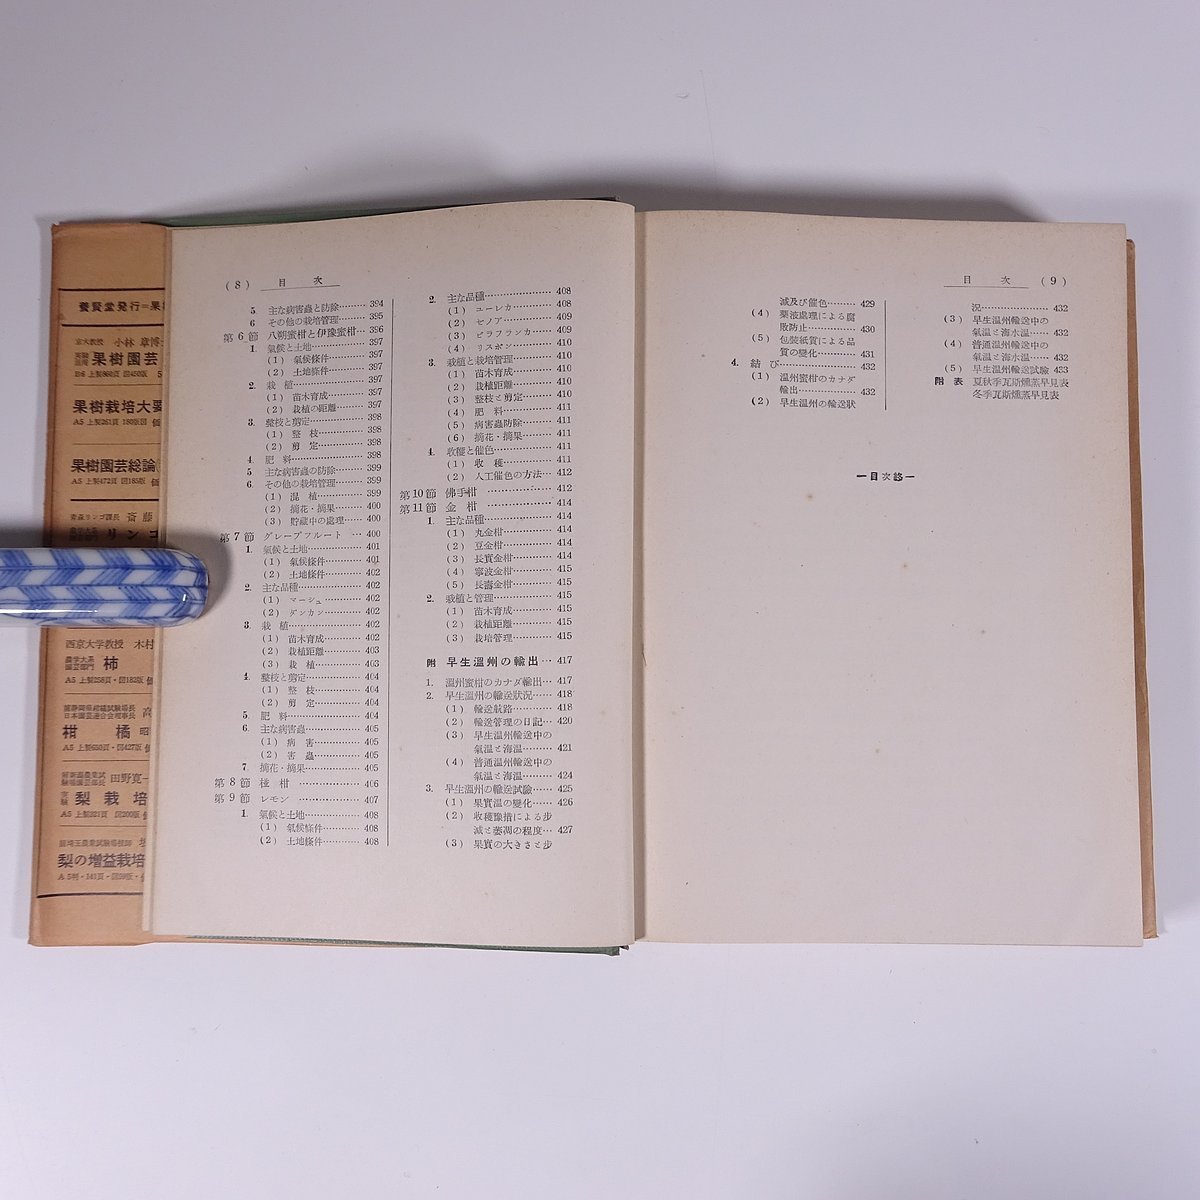 養賢堂発行=果
京大教授 小林 章博
果樹園芸
B6 上製860頁 図450版
果樹栽培大要
A5 上製261頁 180版図 価
果樹園芸総論
A5 上製472頁 図185版 価
青森リンゴ課長 斎藤
リンゴ
西京大学教授 木村
農学大系
園芸部門 柿
A5 上製258頁・図182版 価
日本園芸連合会理事長 高
柑橘 昭
A5 上製650頁・図427版 価
田野寛一
実験 梨栽培
A5 上製321頁 図200版 価
梨の増益栽培
A5判・141頁・図59版・
(8) 目次
5 主な病害蟲と防除……… 394
6 その他の栽培管理……… 395
第6節 八朔蜜柑と伊豫蜜柑… 396
1. 氣候と土地……… 397
(1) 氣候條件……… 397
(2) 土地條件……… 397
2. 栽植……… 397
(1) 苗木育成……… 397
(2) 栽植の距離……… 397
3. 整枝と剪定……… 398
(1) 整枝……… 398
(2) 剪定……… 398
4. 肥料……… 398
5 主な病害蟲の防除……… 399
6. その他の栽培管理……… 399
(1) 混植……… 399
(2) 摘花・摘果……… 400
(3) 貯蔵中の處理…… 400
第7節 グレープフルート … 400
1. 氣候と土地……… 401
(1) 氣候條件……… 401
(2) 土地條件……… 402
2. 主な品種……… 402
(1) マーシュ……… 402
(2) ダンカン……… 402
3. 栽植……… 402
(1) 苗木育成……… 402
(2) 栽植距離……… 403
(3) 栽植……… 403
4. 整枝と剪定……… 404
(1) 整枝……… 404
(2) 剪定……… 404
5. 肥料……… 404
6. 主な病害蟲……… 405
(1) 病害……… 405
(2) 害蟲……… 405
7. 摘花・摘果……… 405
第8節 椪柑……… 406
第9節 レモン……… 407
1. 氣候と土地……… 408
(1) 氣候條件……… 408
(2) 土地條件……… 408
2. 主な品種……… 408
(1) ユーレカ……… 408
(2) ゼノア……… 409
(3) ビラフランカ……… 409
(4) リスボン……… 410
3. 栽植と栽培管理……… 410
(1) 苗木育成……… 410
(2) 栽植距離……… 410
(3) 整枝と剪定……… 410
(4) 肥料……… 411
(5) 病害蟲防除……… 411
(6) 摘花・摘果……… 411
4. 收穫と催色……… 411
(1) 收穫……… 411
(2) 人工催色の方法… 412
第10節 佛手柑……… 412
第11節 金柑……… 414
1. 主な品種……… 414
(1) 丸金柑……… 414
(2) 豆金柑……… 414
(3) 長實金柑……… 414
(4) 寧波金柑……… 415
(5) 長壽金柑……… 415
2. 栽植と管理……… 415
(1) 苗木育成……… 415
(2) 栽植距離……… 415
(3) 栽培管理……… 415
附 早生溫州の輸出… 417
1. 溫州蜜柑のカナダ輸出… 417
2. 早生溫州の輸送狀況…… 418
(1) 輸送航路……… 418
(2) 輸送管理の日記… 420
(3) 早生溫州輸送中の
氣溫と海溫……… 421
(4) 普通溫州輸送中の
氣溫と海溫……… 424
3. 早生溫州の輸送試驗…… 425
(1) 果實溫の變化…… 426
(2) 收穫豫措による步
減と萎凋の程度… 427
(3) 果實の大きさと步
目次 (9)
減及び催色……… 429
(4) 藥液處理による腐
敗防止……… 430
(5) 包裝紙質による品
質の變化……… 431
4. 結び……… 432
(1) 溫州蜜柑のカナダ
輸出……… 432
(2) 早生溫州の輸送狀
況……… 432
(3) 早生溫州輸送中の
氣溫と海水溫…… 432
(4) 普通溫州輸送中の
氣溫と海水溫…… 432
(5) 早生溫州輸送試驗 433
附表 夏秋季瓦斯燻蒸早見表
冬季瓦斯燻蒸早見表
―目次終―